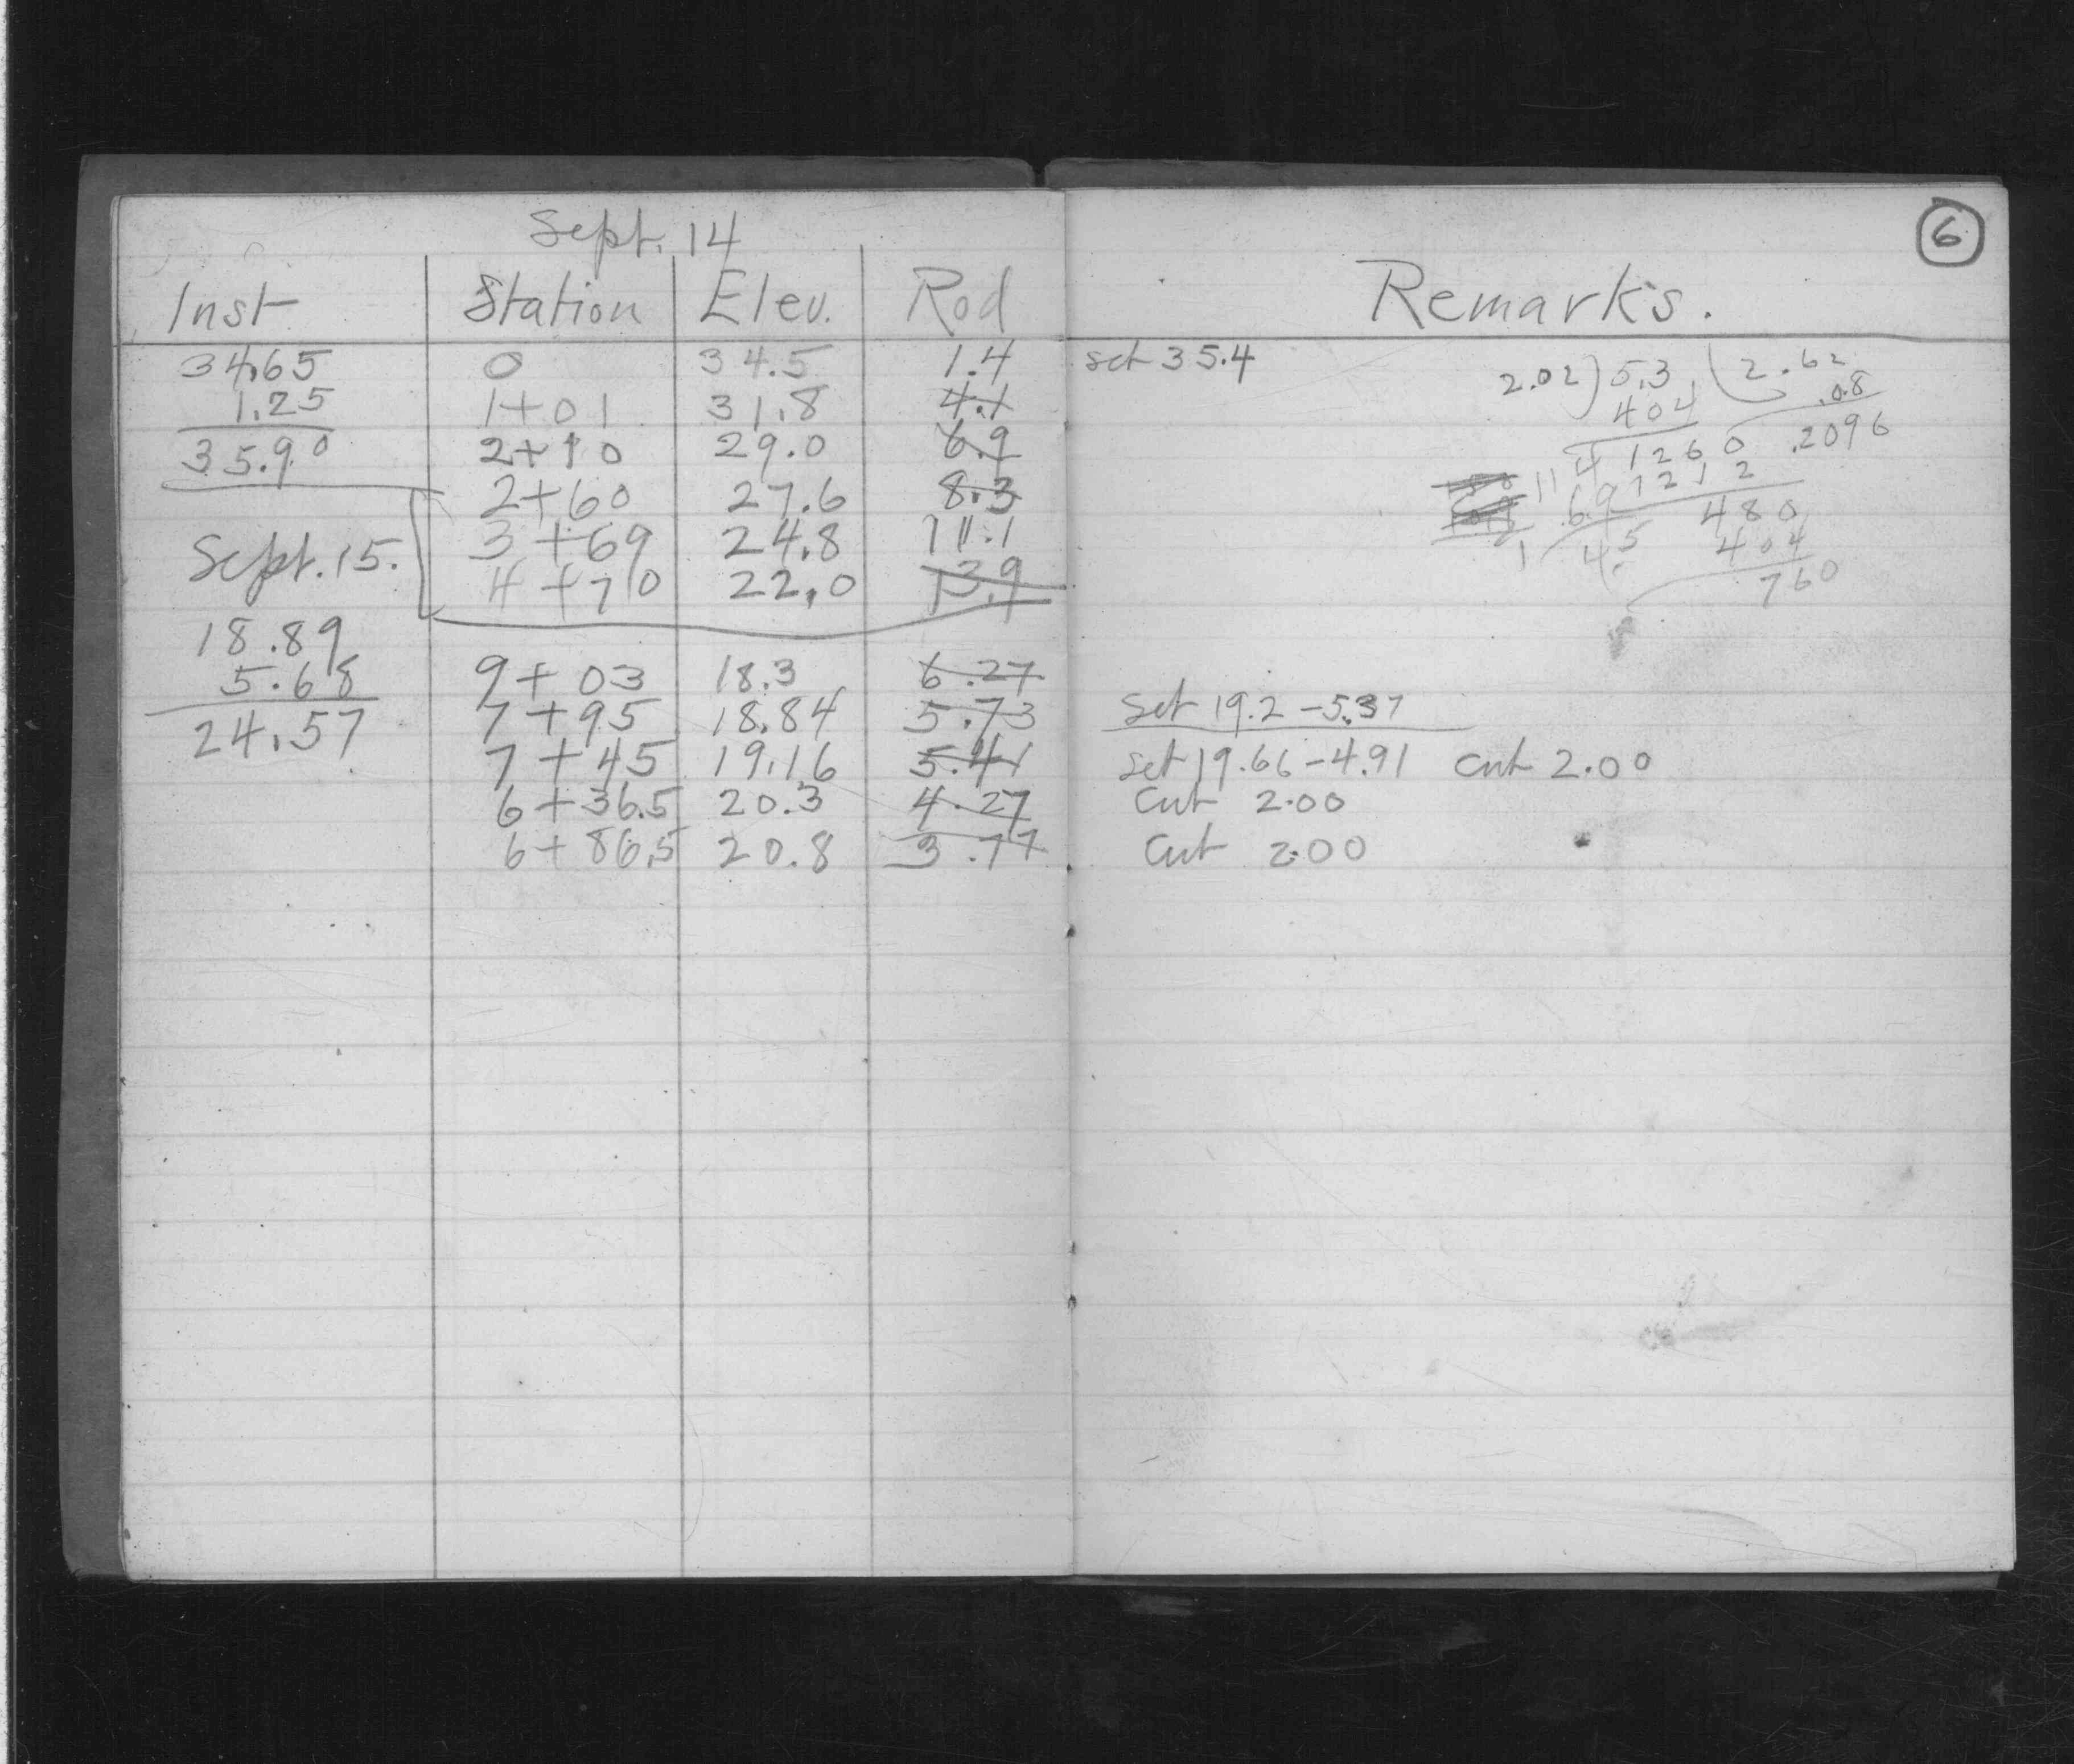 Sept. 14
6
Inst Station Elev. Rod Remarks.
34.65 0 34.5 1.4 set 35.4
1.25 1+01 31.8 4.1
35.90 2+10 29.0 6.9
2+60 27.6 8.3
Sept. 15. 3+69 24.8 11.1
4+70 22.0 13.9
2.02)5.3(2.62
404 .08
1260 .2096
1212
480
404
760
11.4
6.9
4.5
18.89
5.68 9+03 18.3 6.27
24.57 7+95 18.84 5.73 set 19.2-5.37
7+45 19.16 5.41 set 19.66-4.91 Cut 2.00
6+36.5 20.3 4.27 Cut 2.00
6+86.5 20.8 3.77 Cut 2.00